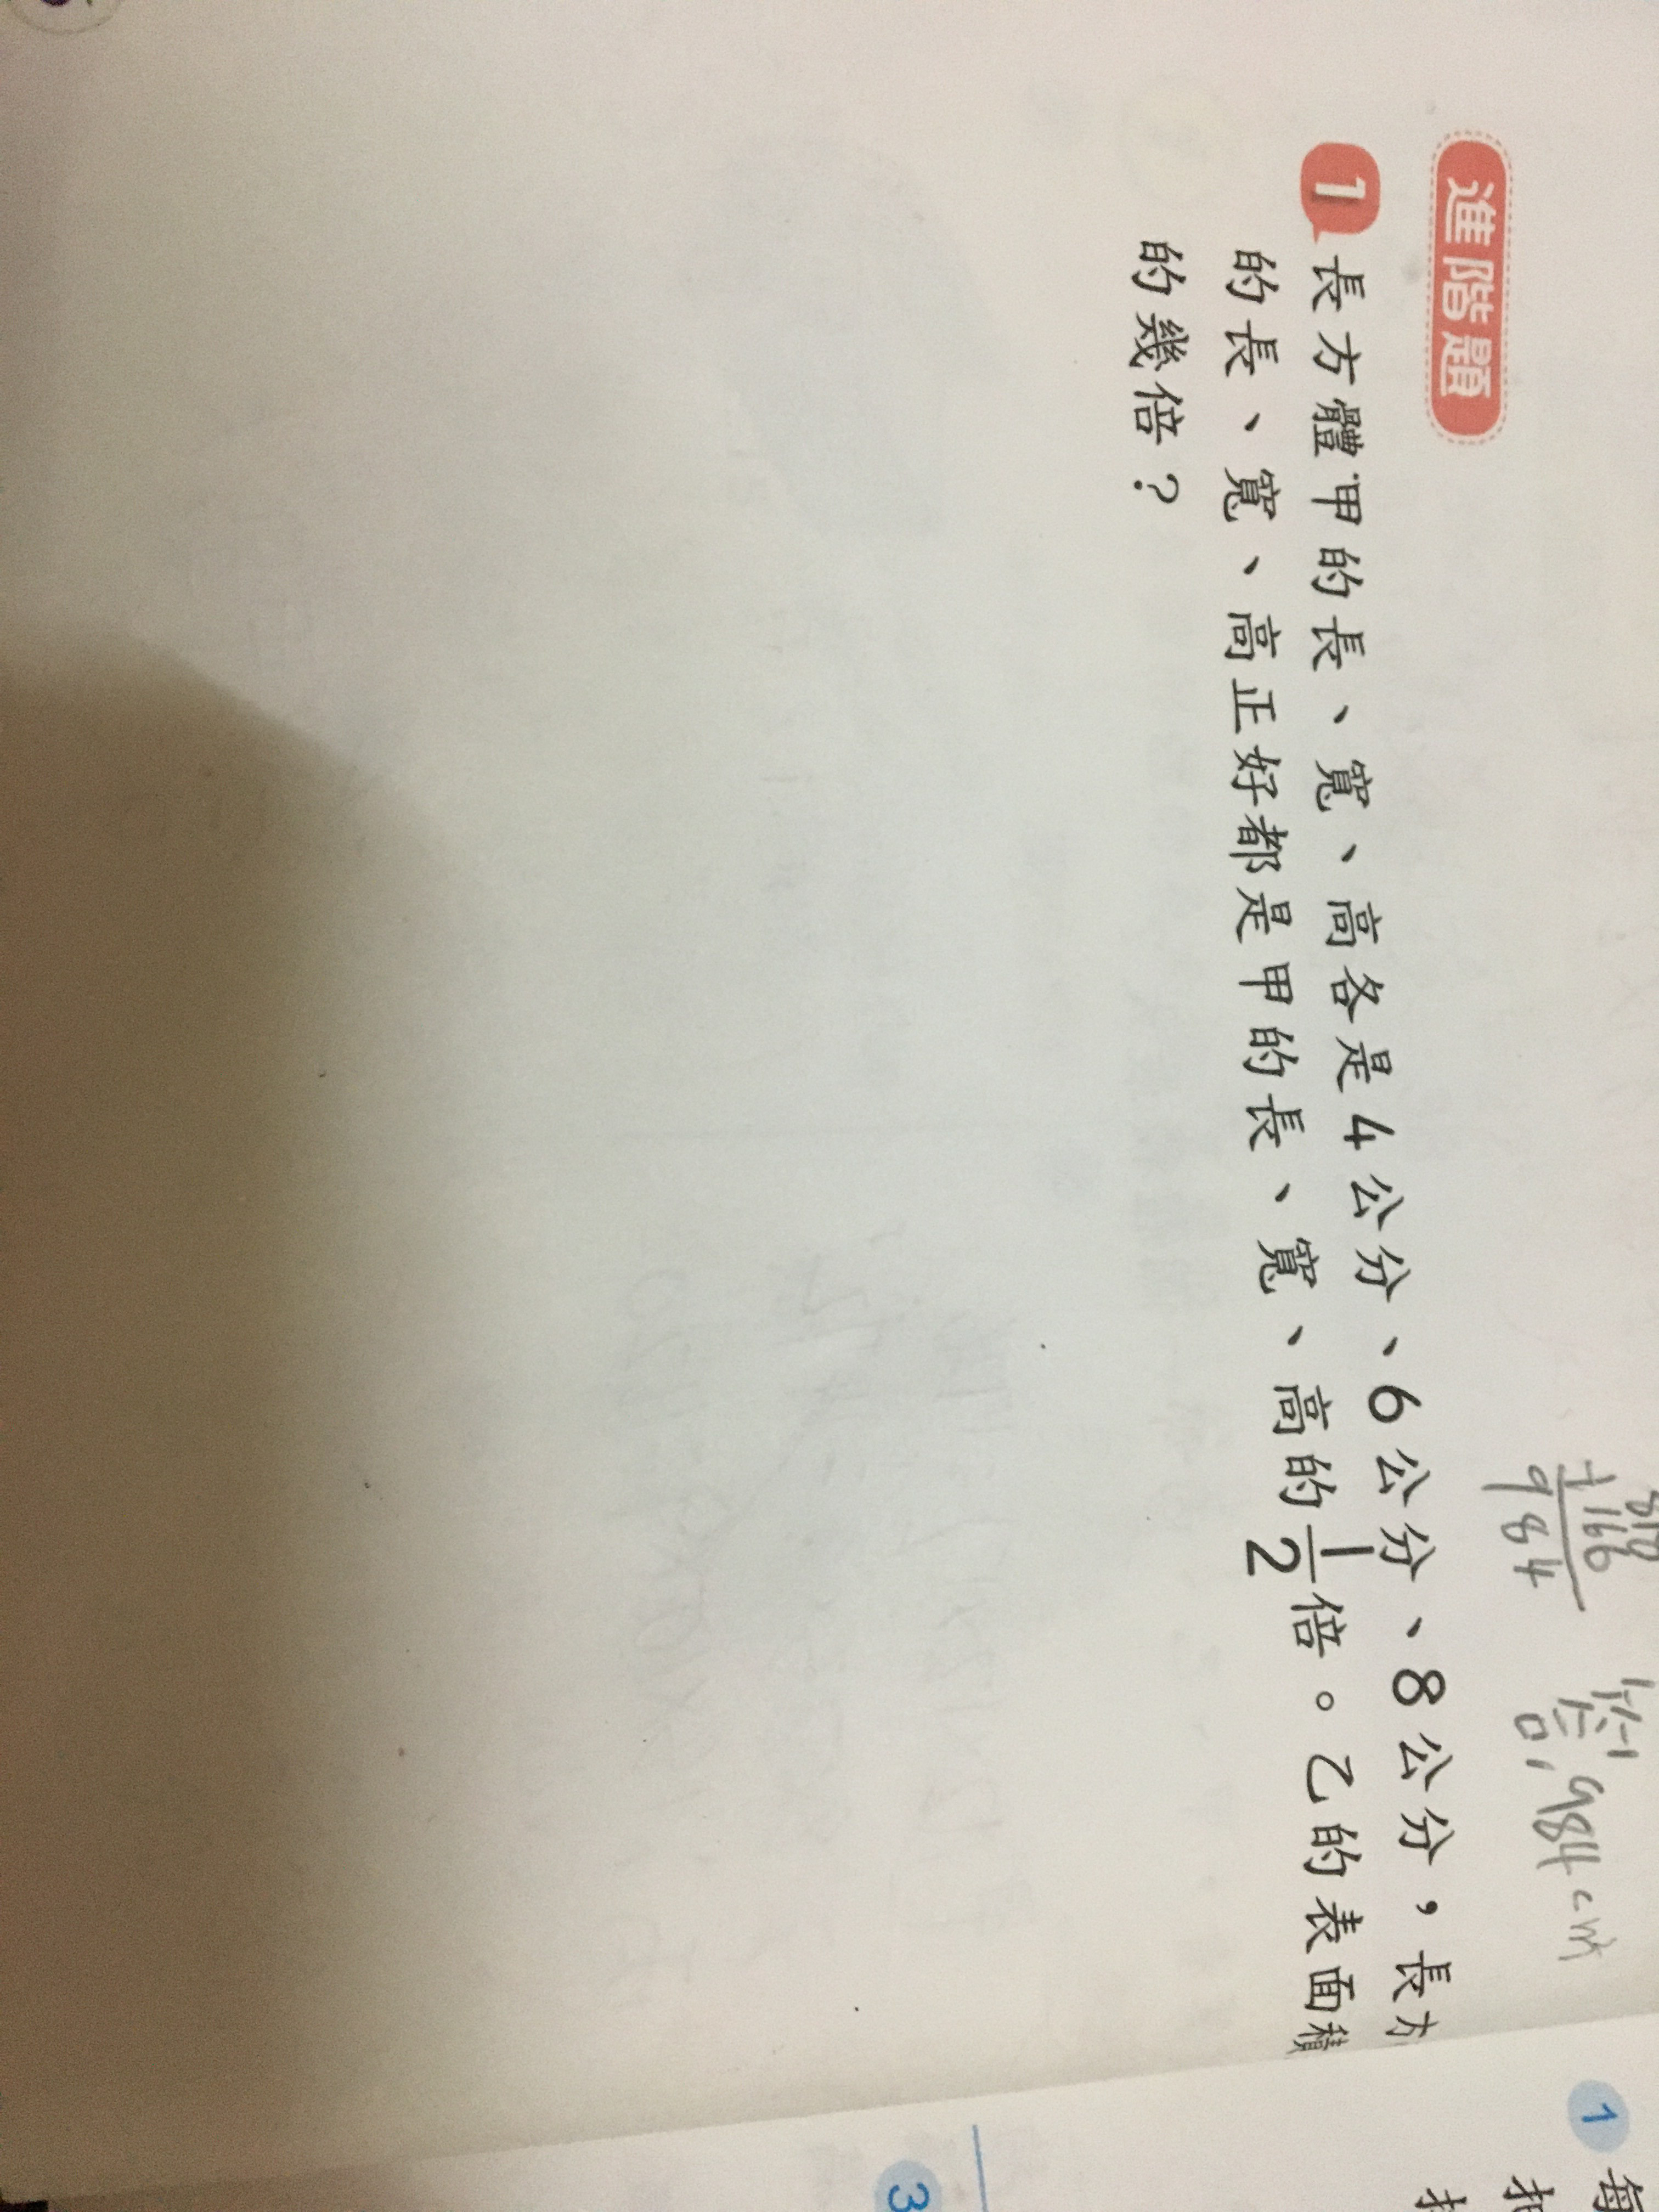 818
+166
984
0.984
進階題
1 長方體甲的長、寬、高各是4公分、6公分、8公分，長方
的長、寬、高正好都是甲的長、寬、高的1/2倍。乙的表面積
的幾倍？
1 每
3